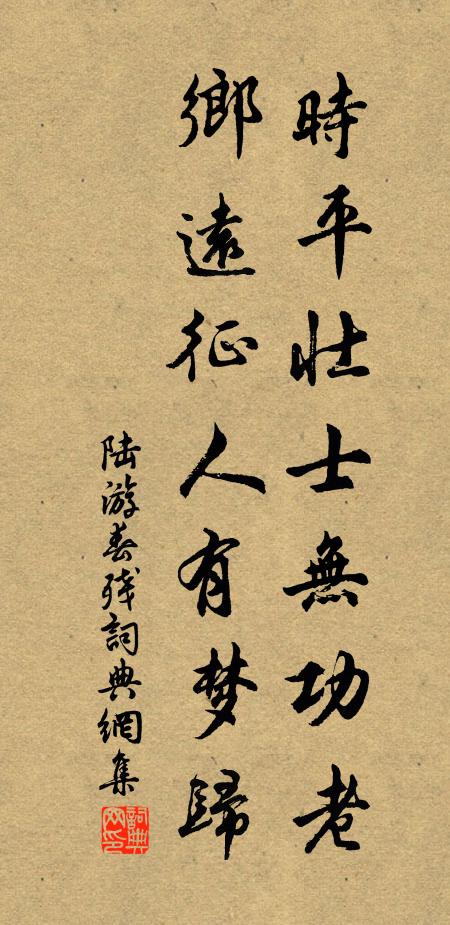 時平壯士無功老
鄉遠征人有梦歸
陆游春残詞典網集
詞典网印